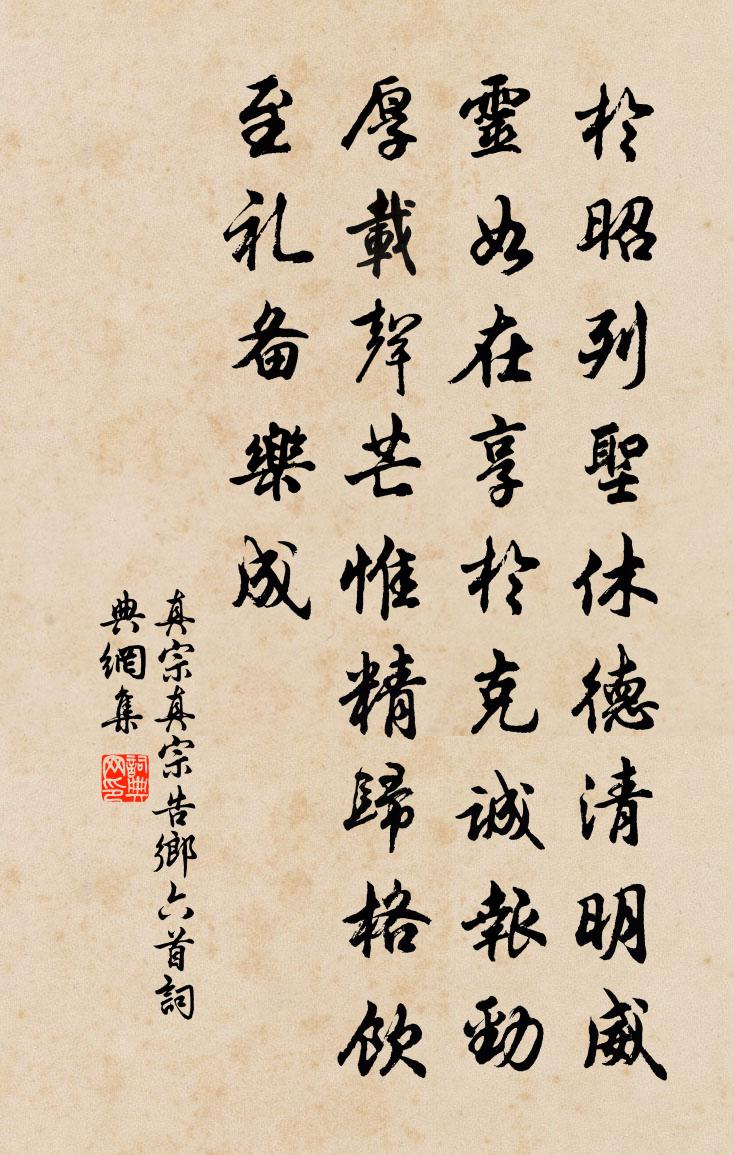 於昭列聖休德清明威
靈如在享於克誠報勁
厚載聲芒惟精歸格飲
至礼备樂成
真宗真宗告鄉六首詞
典網集
詞典
网印